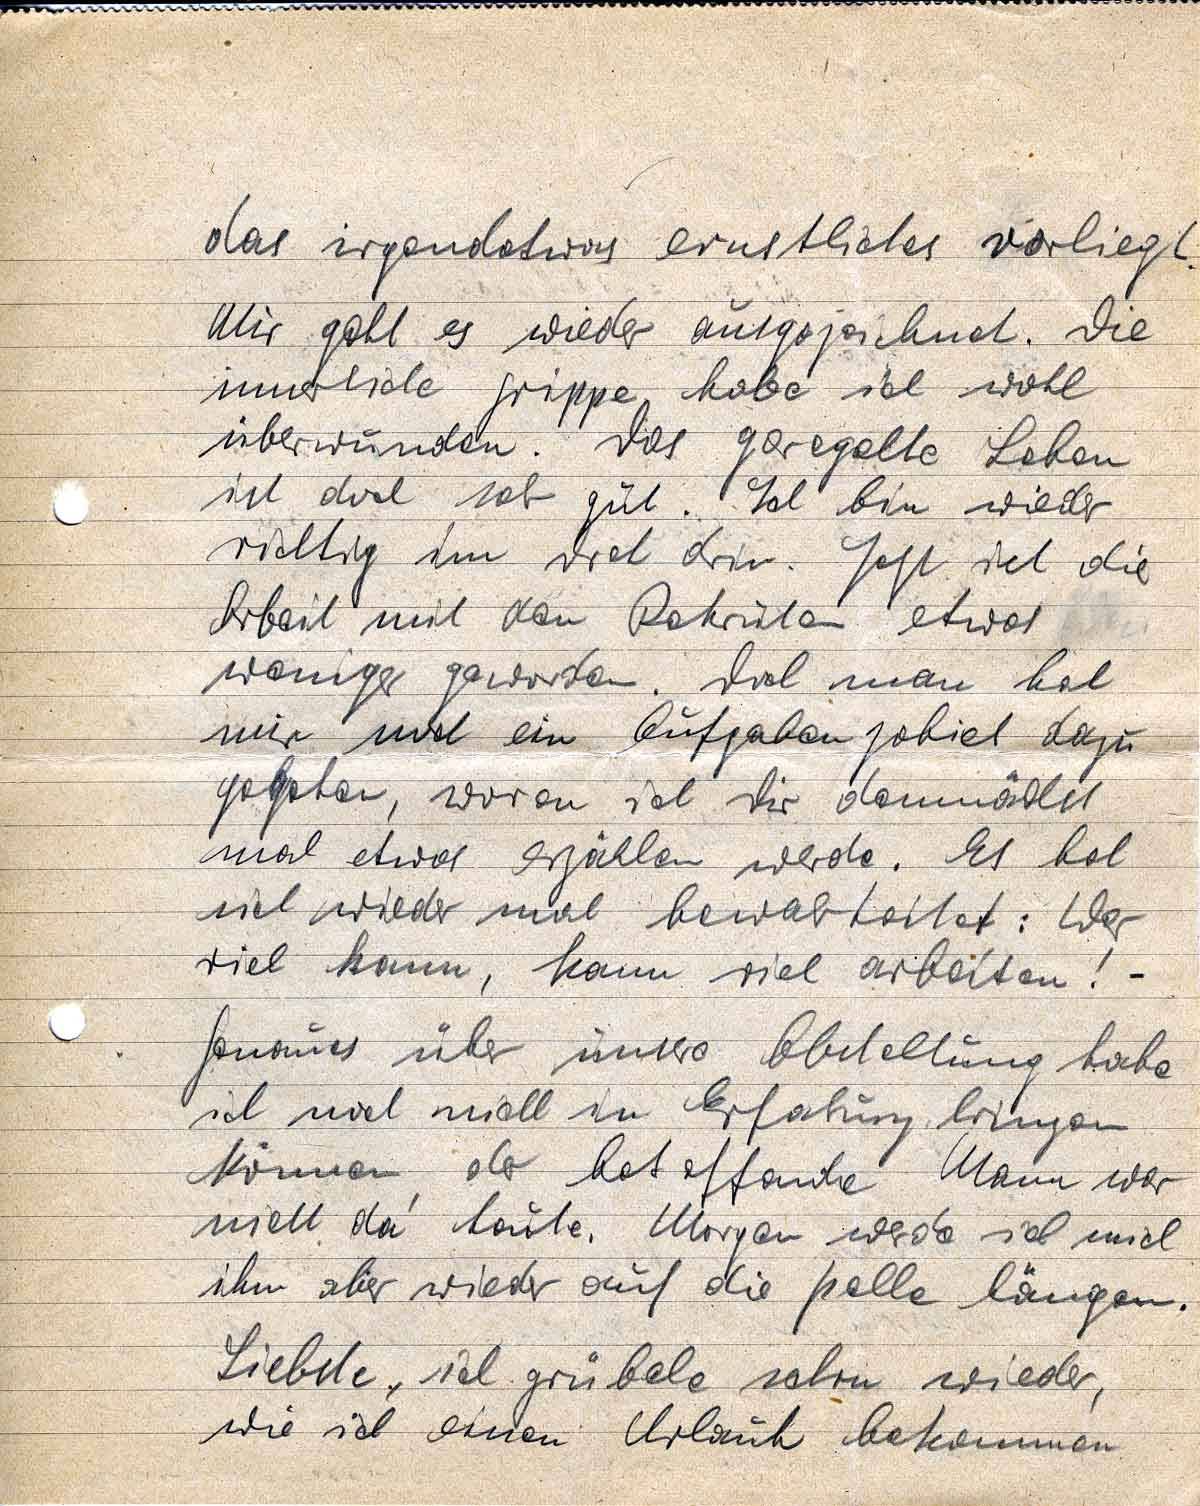 das irgendetwas ernstliches vorliegt.
Mir geht es wieder ausgezeichnet. Die
innerliche Grippe habe ich wohl
überwunden. Das geregelte Leben
ist doch sehr gut. Ich bin wieder
richtig im Dreh drin. Jetzt ist die
Arbeit mit den Rekruten etwas
weniger geworden. Doch man hat
mir noch ein Aufgabengebiet dazu
gegeben, woren ich Dir demnächst
mal etwas erzählen werde. Es hat
sich wieder mal bewahrheitet: Wer
viel kann, kann viel arbeiten! -
Genaues über unsere Abstellung habe
ich noch nicht in Erfahrung bringen
können, der betreffende Mann war
nicht da heute. Morgen werde ich mich
ihm aber wieder auf die Pelle hängen.
Liebste, ich grübele schon wieder,
wie ich einen Urlaub bekommen